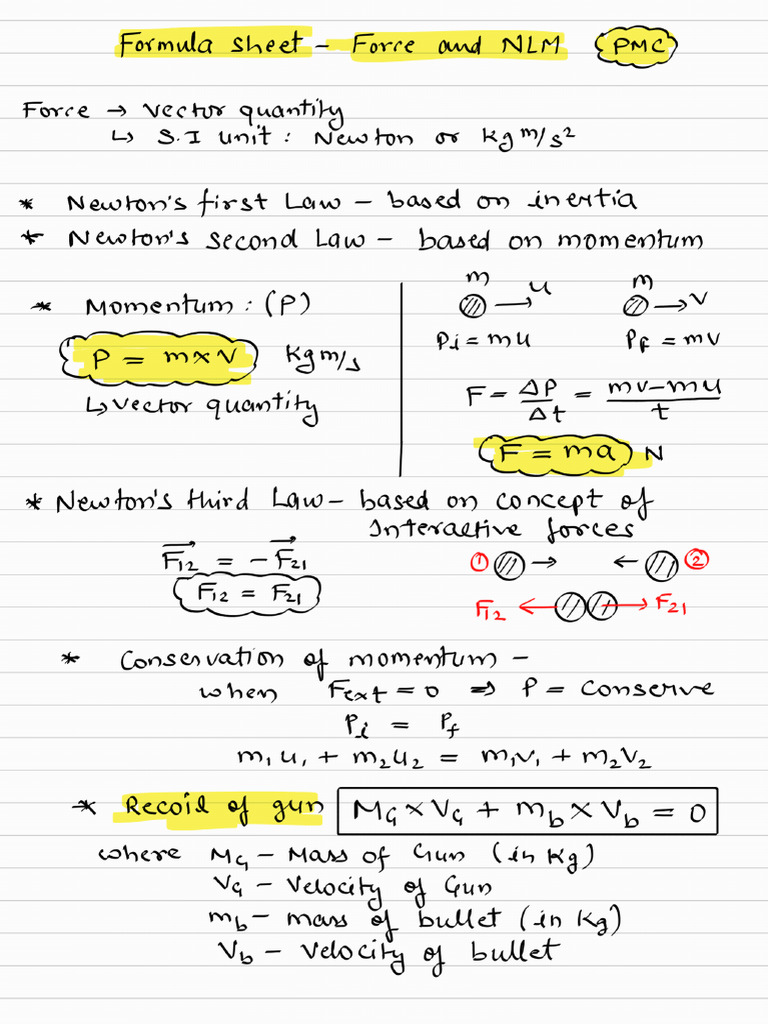 Formula sheet - Force and NLM PMC
Force → vector quantity
↳ S.I unit : Newton or kg m/s²
* Newton's first Law - based on inertia
* Newton's second Law - based on momentum
* Momentum : (P)
P = m×v kg m/s
↳ vector quantity
m → u m → v
Pi = mu Pf = mv
F = ΔP/Δt = mv-mu/t
F = ma N
* Newton's third Law - based on concept of
Interactive forces
F⃗12 = -F⃗21
F12 = F21
① → ← ②
F12 ← → F21
* Conservation of momentum -
when Fext = 0 ⇒ P = Conserve
Pi = Pf
m₁u₁ + m₂u₂ = m₁v₁ + m₂v₂
* Recoil of gun MG×VG + mb×Vb = 0
where MG - Mass of Gun (in kg)
VG - Velocity of Gun
mb - mass of bullet (in kg)
Vb - Velocity of bullet